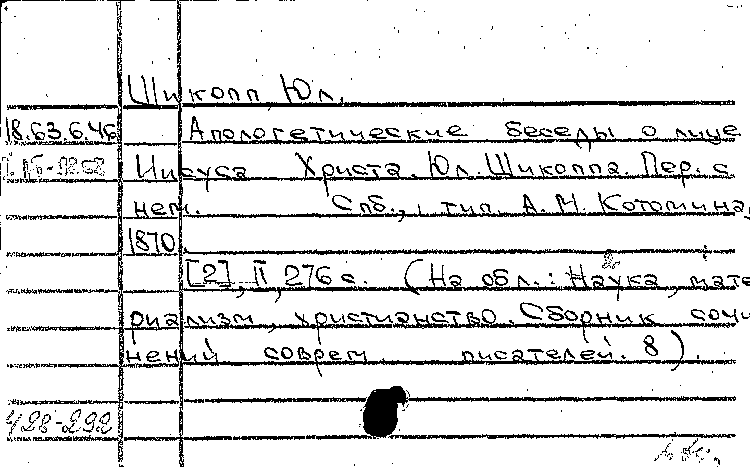 Шикопп, Юл.
18.63.6.46 Апологетические беседы о лице
Иисуса Христа. Юл. Шикоппа. Пер. с
нем. Спб., тип. А. М. Котомина,
1870.
[2], II, 276 с. (На обл.: Наука, мате
риализм, христианство. Сборник сочи
нений соврем. писателей. 8).
428-292